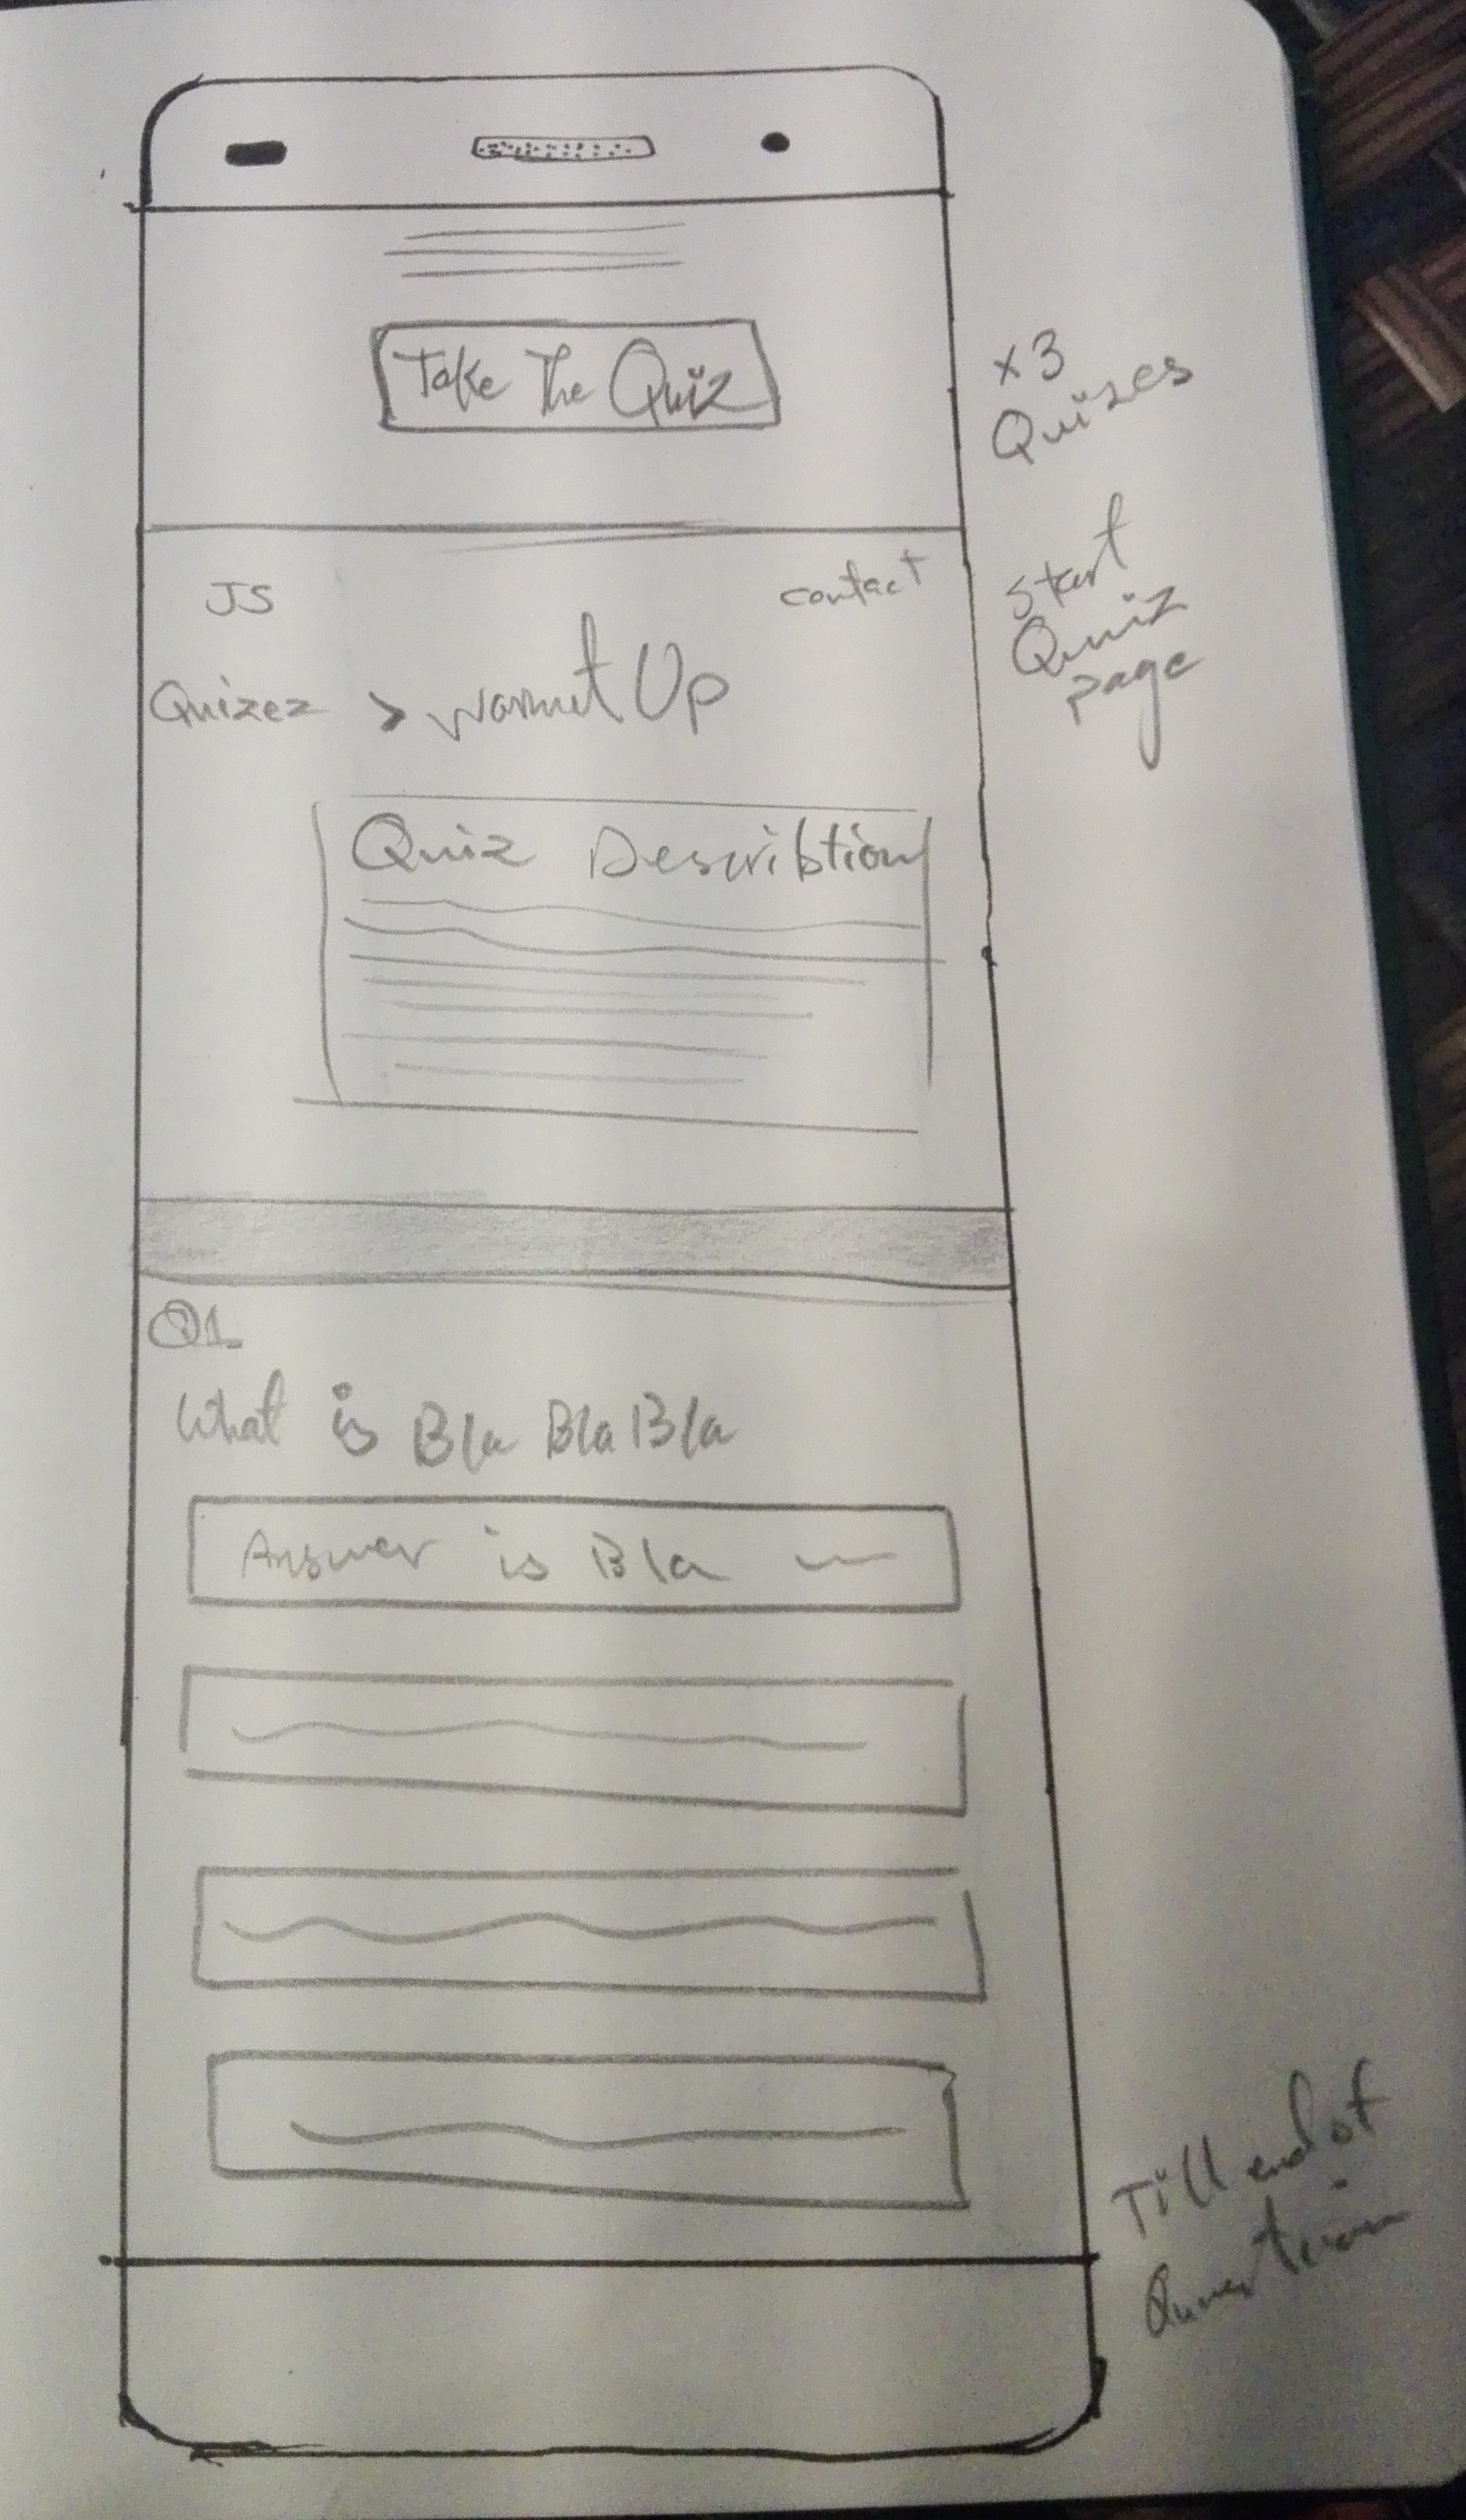 Take The Quiz
x3
Quizes
JS
contact
Start
Quiz
page
Quizez > warmet Up
Quiz Describtion
Q1
What is Bla Bla Bla
Answer is Bla
Till end of